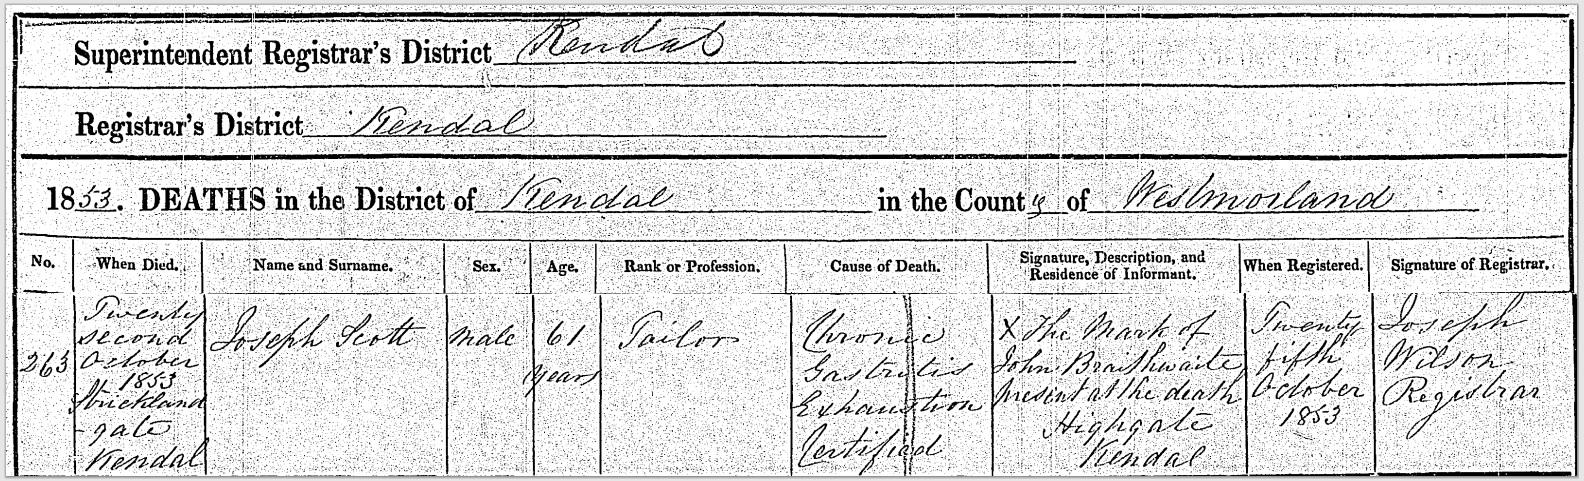 Superintendent Registrar's District Kendal
Registrar's District Kendal
1853. DEATHS in the District of Kendal in the County of Westmorland
No.
When Died.
Name and Surname.
Sex.
Age.
Rank or Profession.
Cause of Death.
Signature, Description, and
Residence of Informant.
When Registered.
Signature of Registrar.
263
Twenty
second
October
1853
Strickland
-gate
Kendal
Joseph Scott
Male
61
years
Tailor
Chronic
Gastritis
Exhaustion
Certified
X The Mark of
John Braithwaite
present at the death
Highgate
Kendal
Twenty
fifth
October
1853
Joseph
Wilson
Registrar